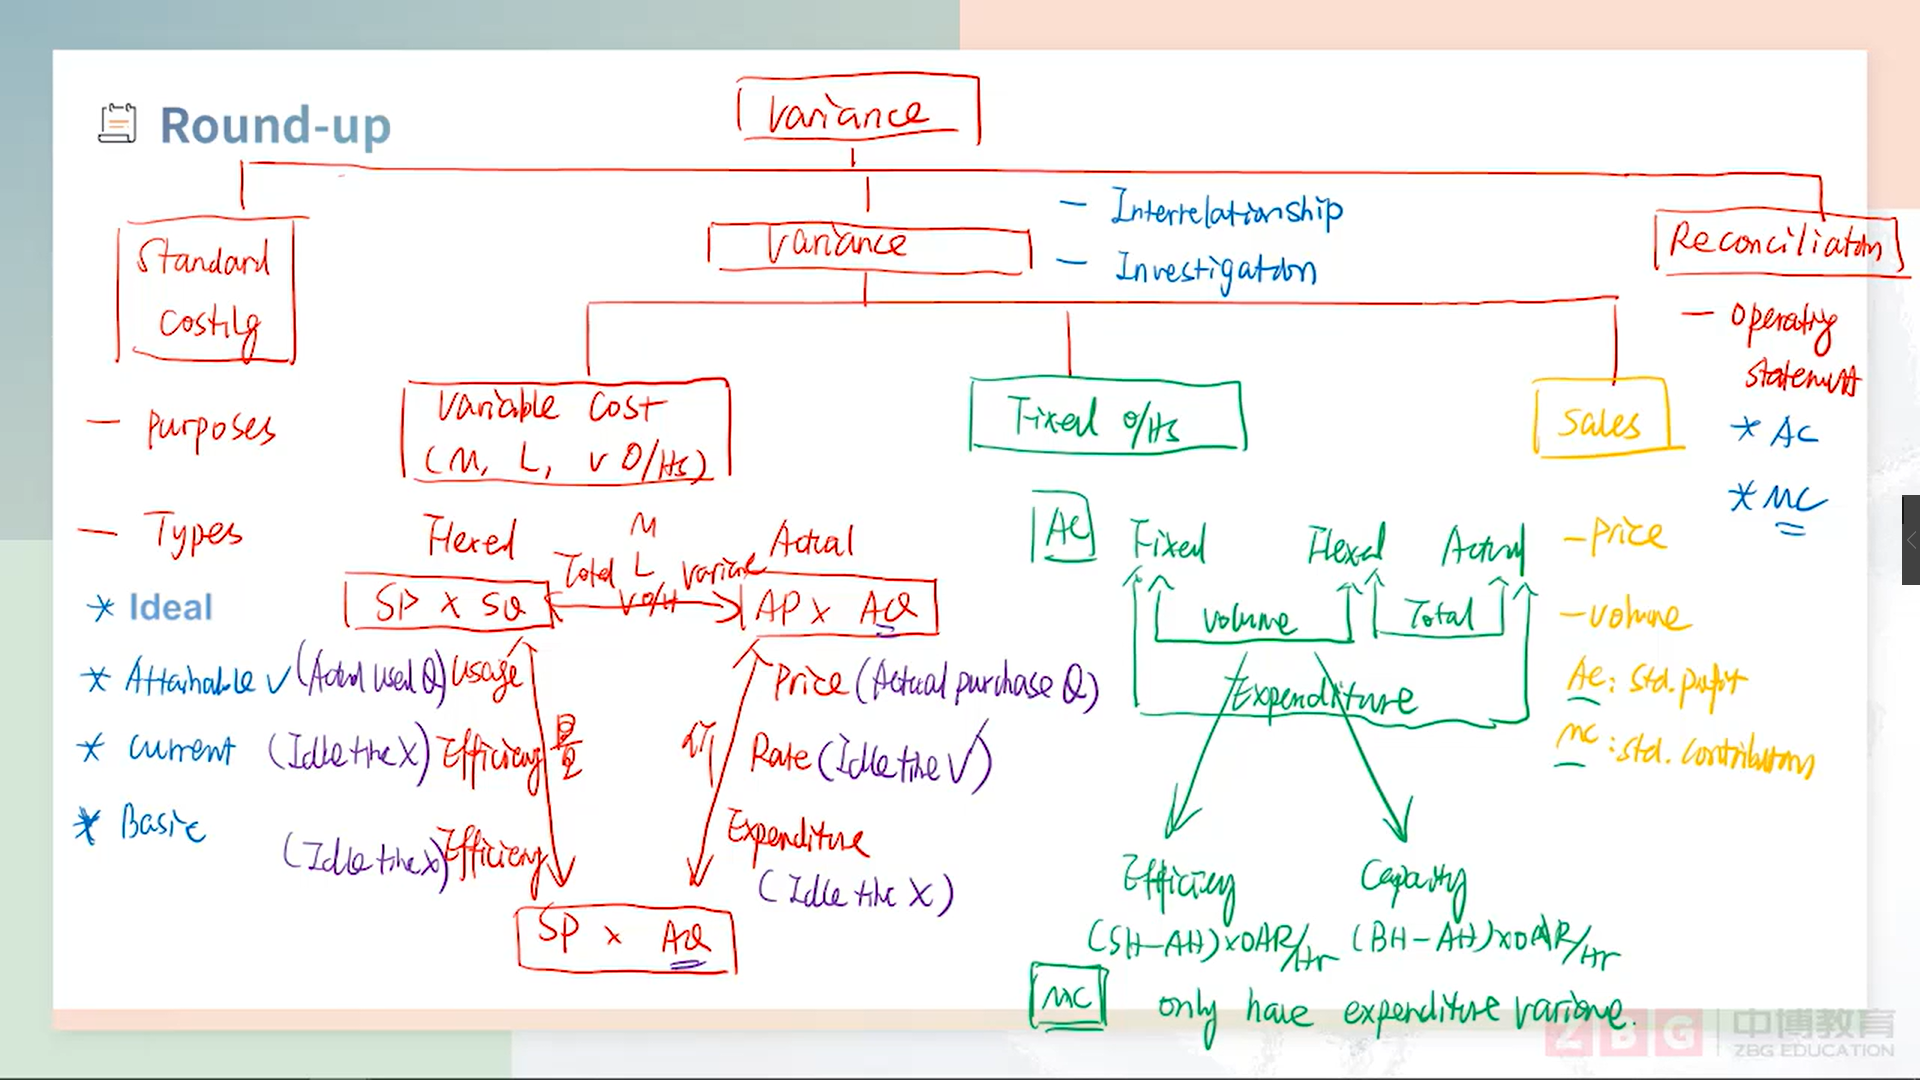 Round-up
Variance
Standard
Costing
Variance
— Interrelationship
— Investigation
Reconciliation
— Operating
statement
* AC
* MC
— Purposes
— Types
* Ideal
* Attainable √
* Current
* Basic
Variable Cost
(M, L, V O/Hs)
Flexed
M
L
V O/H
Total
Variance
Actual
SP × SQ
AP × AQ
(Actual used Q) Usage
Price (Actual purchase Q)
(Idle time X) Efficiency
量
价
Rate (Idle time √)
(Idle time X) Efficiency
Expenditure
(Idle time X)
SP × AQ
Fixed O/Hs
AC
Fixed
Flexed
Actual
Volume
Total
Expenditure
Efficiency
Capacity
(SH-AH)×OAR/Hr
(BH-AH)×OAR/Hr
MC
only have expenditure variance.
Sales
— Price
— Volume
AC: Std. profit
MC: Std. contribution
ZBG
中博教育
ZBG EDUCATION